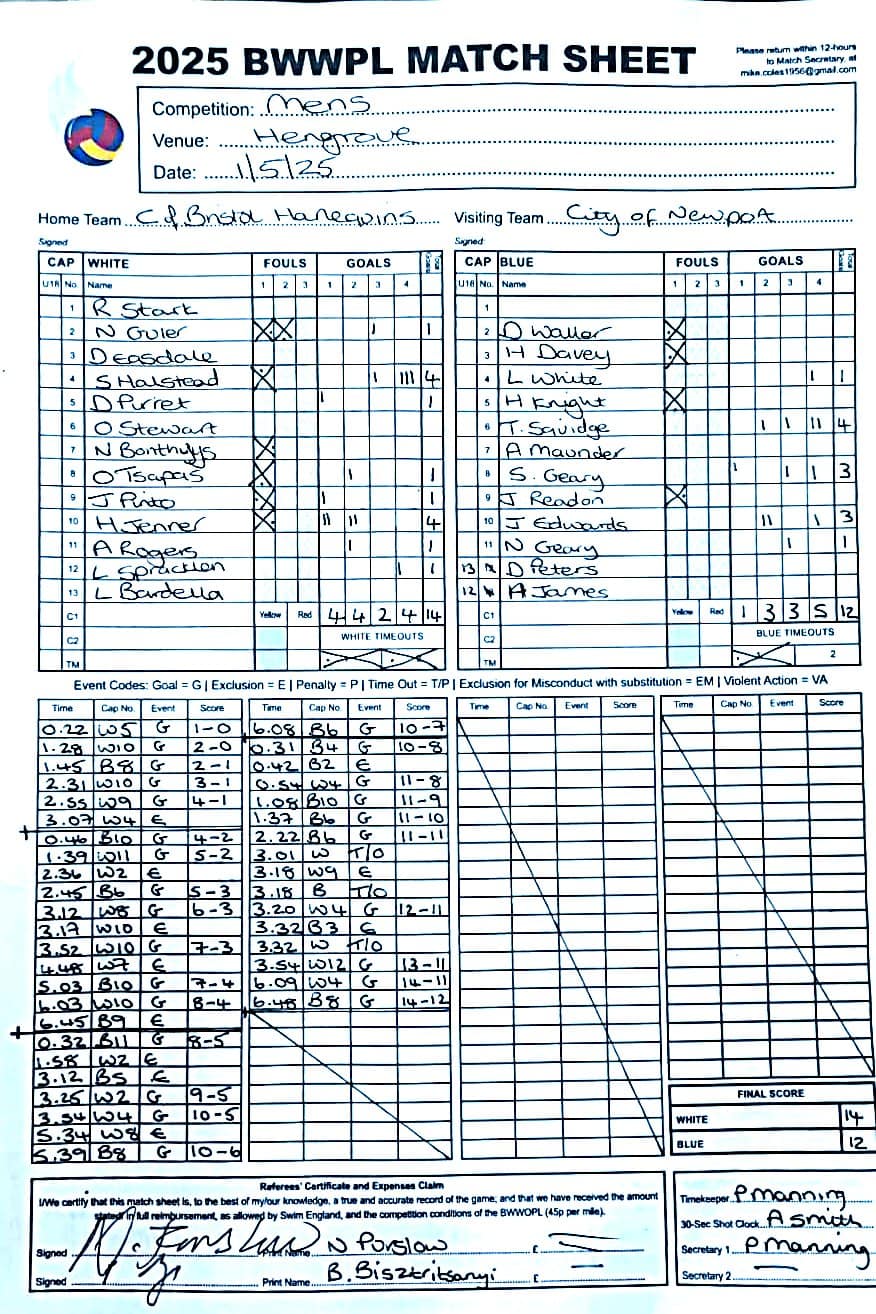 2025 BWWPL MATCH SHEET
Please return within 12-hours
to Match Secretary, at
mike.coles1956@gmail.com
Competition: Mens
Venue: Hengrove
Date: 1/5/25
Home Team C of Bristol Harlequins Visiting Team City of Newport
Signed Signed
CAP WHITE FOULS GOALS CAP BLUE FOULS GOALS
U18 No. Name 1 2 3 1 2 3 4 U18 No. Name 1 2 3 1 2 3 4
1 R Stark 1
2 N Guier X X I 1 2 D Waller X
3 D Easdale 3 H Davey X
4 S Halstead X I III 4 4 L White I 1
5 D Purret I 1 5 H Knight X
6 O Stewart 6 T. Savidge I I II 4
7 N Bonthuys X 7 A Maunder
8 O Tsapas X I 1 8 S. Geary I I I 3
9 J Pinto X I 1 9 J Readon X
10 H Jenner X II II 4 10 J Edwards II I 3
11 A Rogers I 1 11 N Geary I 1
12 L Spraction I 1 13 D Peters
13 L Bardella 12 A James
C1 Yellow Red 4 4 2 4 14 C1 Yellow Red 1 3 3 5 12
C2 WHITE TIMEOUTS C2 BLUE TIMEOUTS
TM TM 2
Event Codes: Goal = G | Exclusion = E | Penalty = P | Time Out = T/P | Exclusion for Misconduct with substitution = EM | Violent Action = VA
Time Cap No. Event Score Time Cap No. Event Score Time Cap No. Event Score Time Cap No. Event Score
0.22 W5 G 1-0 6.08 B6 G 10-7
1.28 W10 G 2-0 0.31 B4 G 10-8
1.45 B8 G 2-1 0.42 B2 E
2.31 W10 G 3-1 0.54 W4 G 11-8
2.55 W9 G 4-1 1.08 B10 G 11-9
3.07 W4 E 1.37 B6 G 11-10
0.46 B10 G 4-2 2.22 B6 G 11-11
1.39 W11 G 5-2 3.01 W T/O
2.36 W2 E 3.18 W9 E
2.45 B6 G 5-3 3.18 B T/O
3.12 W8 G 6-3 3.20 W4 G 12-11
3.17 W10 E 3.32 B3 E
3.52 W10 G 7-3 3.32 W T/O
4.48 W7 E 3.54 W12 G 13-11
5.03 B10 G 7-4 6.09 W4 G 14-11
6.03 W10 G 8-4 6.48 B8 G 14-12
6.45 B9 E
0.32 B11 G 8-5
1.58 W2 E
3.12 B5 E
3.25 W2 G 9-5
3.54 W4 G 10-5
5.34 W8 E
5.39 B8 G 10-6
FINAL SCORE
WHITE 14
BLUE 12
Referees' Certificate and Expenses Claim
I/We certify that this match sheet is, to the best of my/our knowledge, a true and accurate record of the game, and that we have received the amount
stated in full reimbursement, as allowed by Swim England, and the competition conditions of the BWWOPL (45p per mile).
Signed Print Name N Purslow £
Signed Print Name B. Bisztritsanyi £
Timekeeper P Manning
30-Sec Shot Clock A Smith
Secretary 1 P Manning
Secretary 2